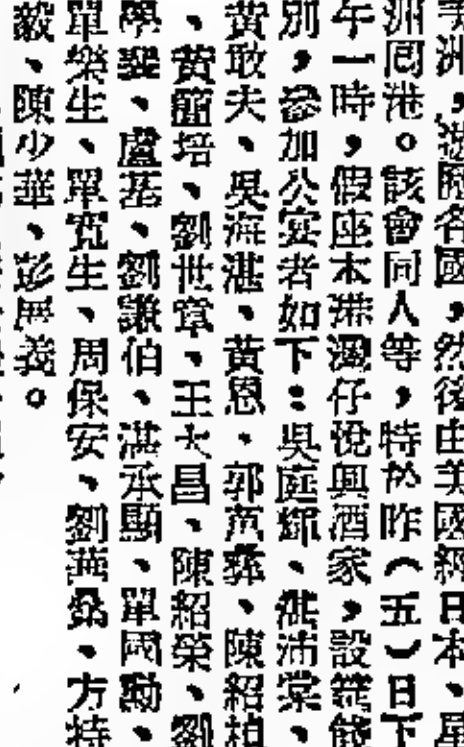 洲，遊歷各國，然後由美國經日本、星
洲回港。該會同人等，特於昨（五）日下
午一時，假座本港灣仔悅興酒家，設筵餞
別，參加公宴者如下：吳庭輝、沛棠、
黃敢夫、吳海湛、黃恩、郭范彝、陳紹柏
、黃培、劉世、王大昌、陳紹榮、劉
學、盧基、劉謙伯、湛承顯、單國勳、
單樂生、單寬生、周保安、劉燕、方持
毅、陳少華、彭展義。